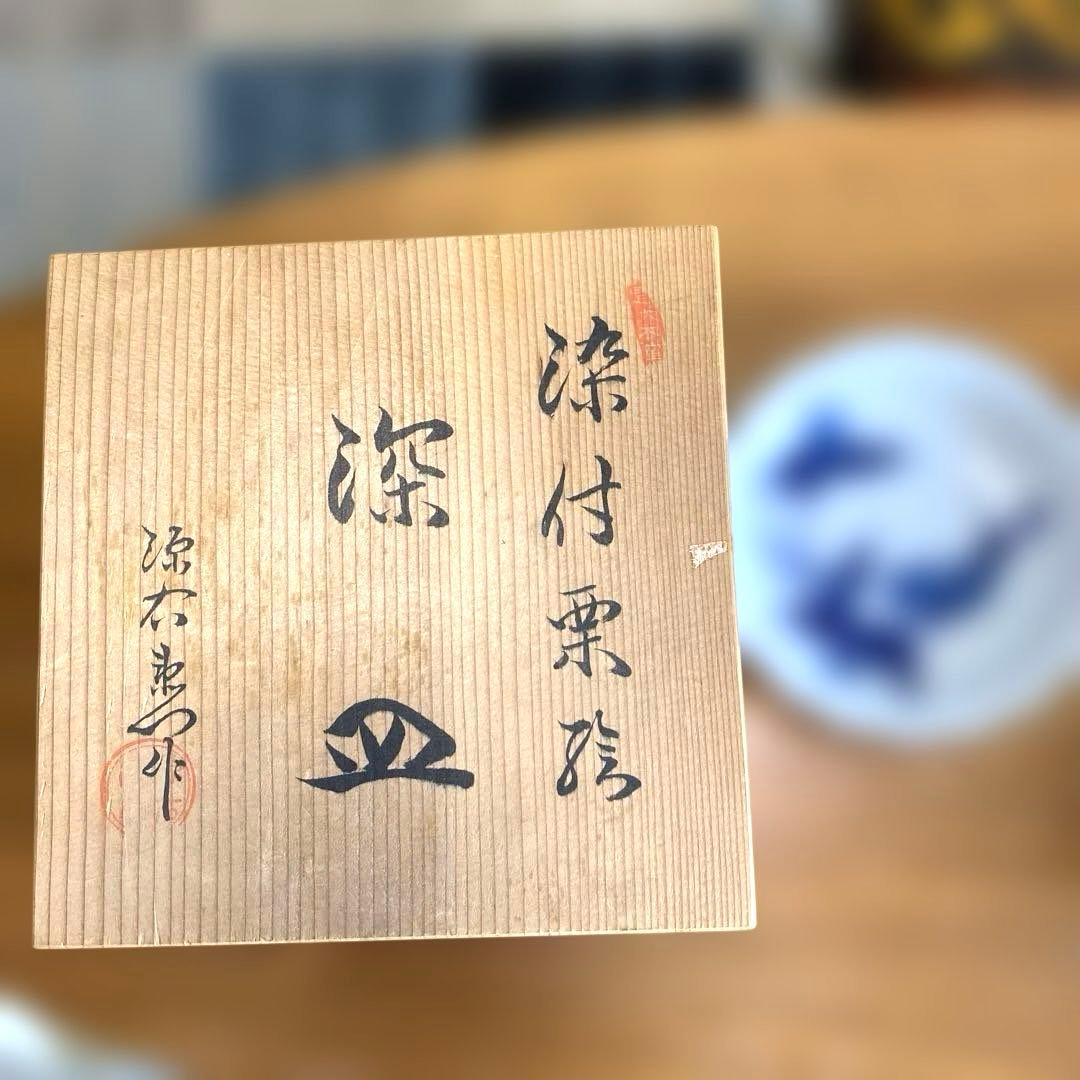 染付栗絵
深皿
源右衛門作